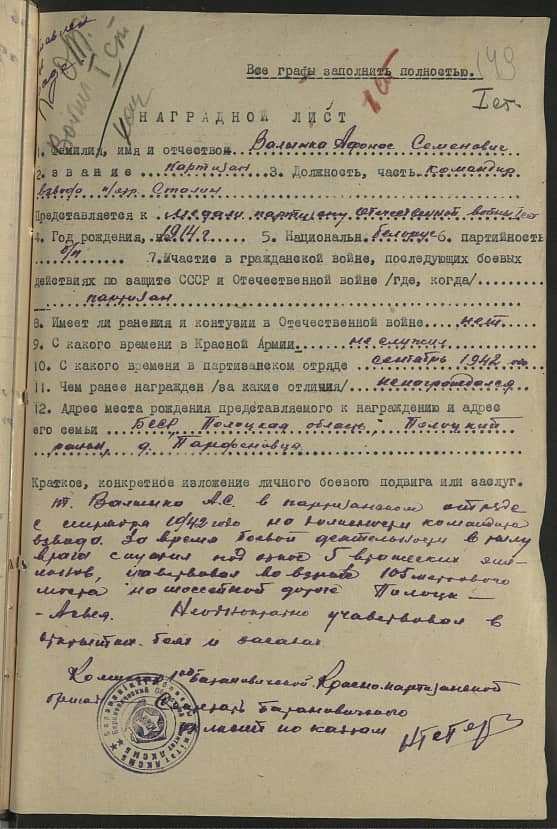 149
Все графы заполнить полностью.
Iст.
НАГРАДНОЙ ЛИСТ
1. Фамилия, имя и отчество Валынко Афонас Семенович
2. звание партизан 3. Должность, часть командир
взвода п/отр. Сталин
Представляется к медали партизану отечественной войны Iст
4. Год рождения, 1914 г 5. Национальн. белорус 6. партийность
б/п 7. Участие в гражданской войне, последующих боевых
действиях по защите СССР и Отечественной войне /где, когда/
партизан
8. Имеет ли ранения и контузии в Отечественной войне нет
9. С какого времени в Красной Армии не служил
10. С какого времени в партизанском отряде сентябрь 1942 го
11. Чем ранее награжден /за какие отличия/ ненаграждался
12. Адрес места рождения представляемого к награждению и адрес
его семьи БССР, Полоцкая область, Полоцкий
район, д. Парфеновцы
Краткое, конкретное изложение личного боевого подвига или заслуг.
тт. Валынко А.С. в партизанском отряде
с сентября 1942 года на должности командира
взвода. За время боевой деятельности в тылу
врага спустил под откос 5 вражеских эше-
лонов, участвовал во взрыве 105 метрового
моста на шоссейной дороге Полоцк –
Неоднократно учавствовал в
открытых боях и засадах
Барановичской Краснопартизанской
бригады Секретарь Барановичского